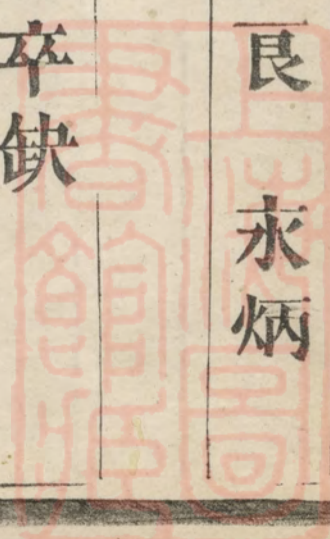 艮　永炳
卒缺